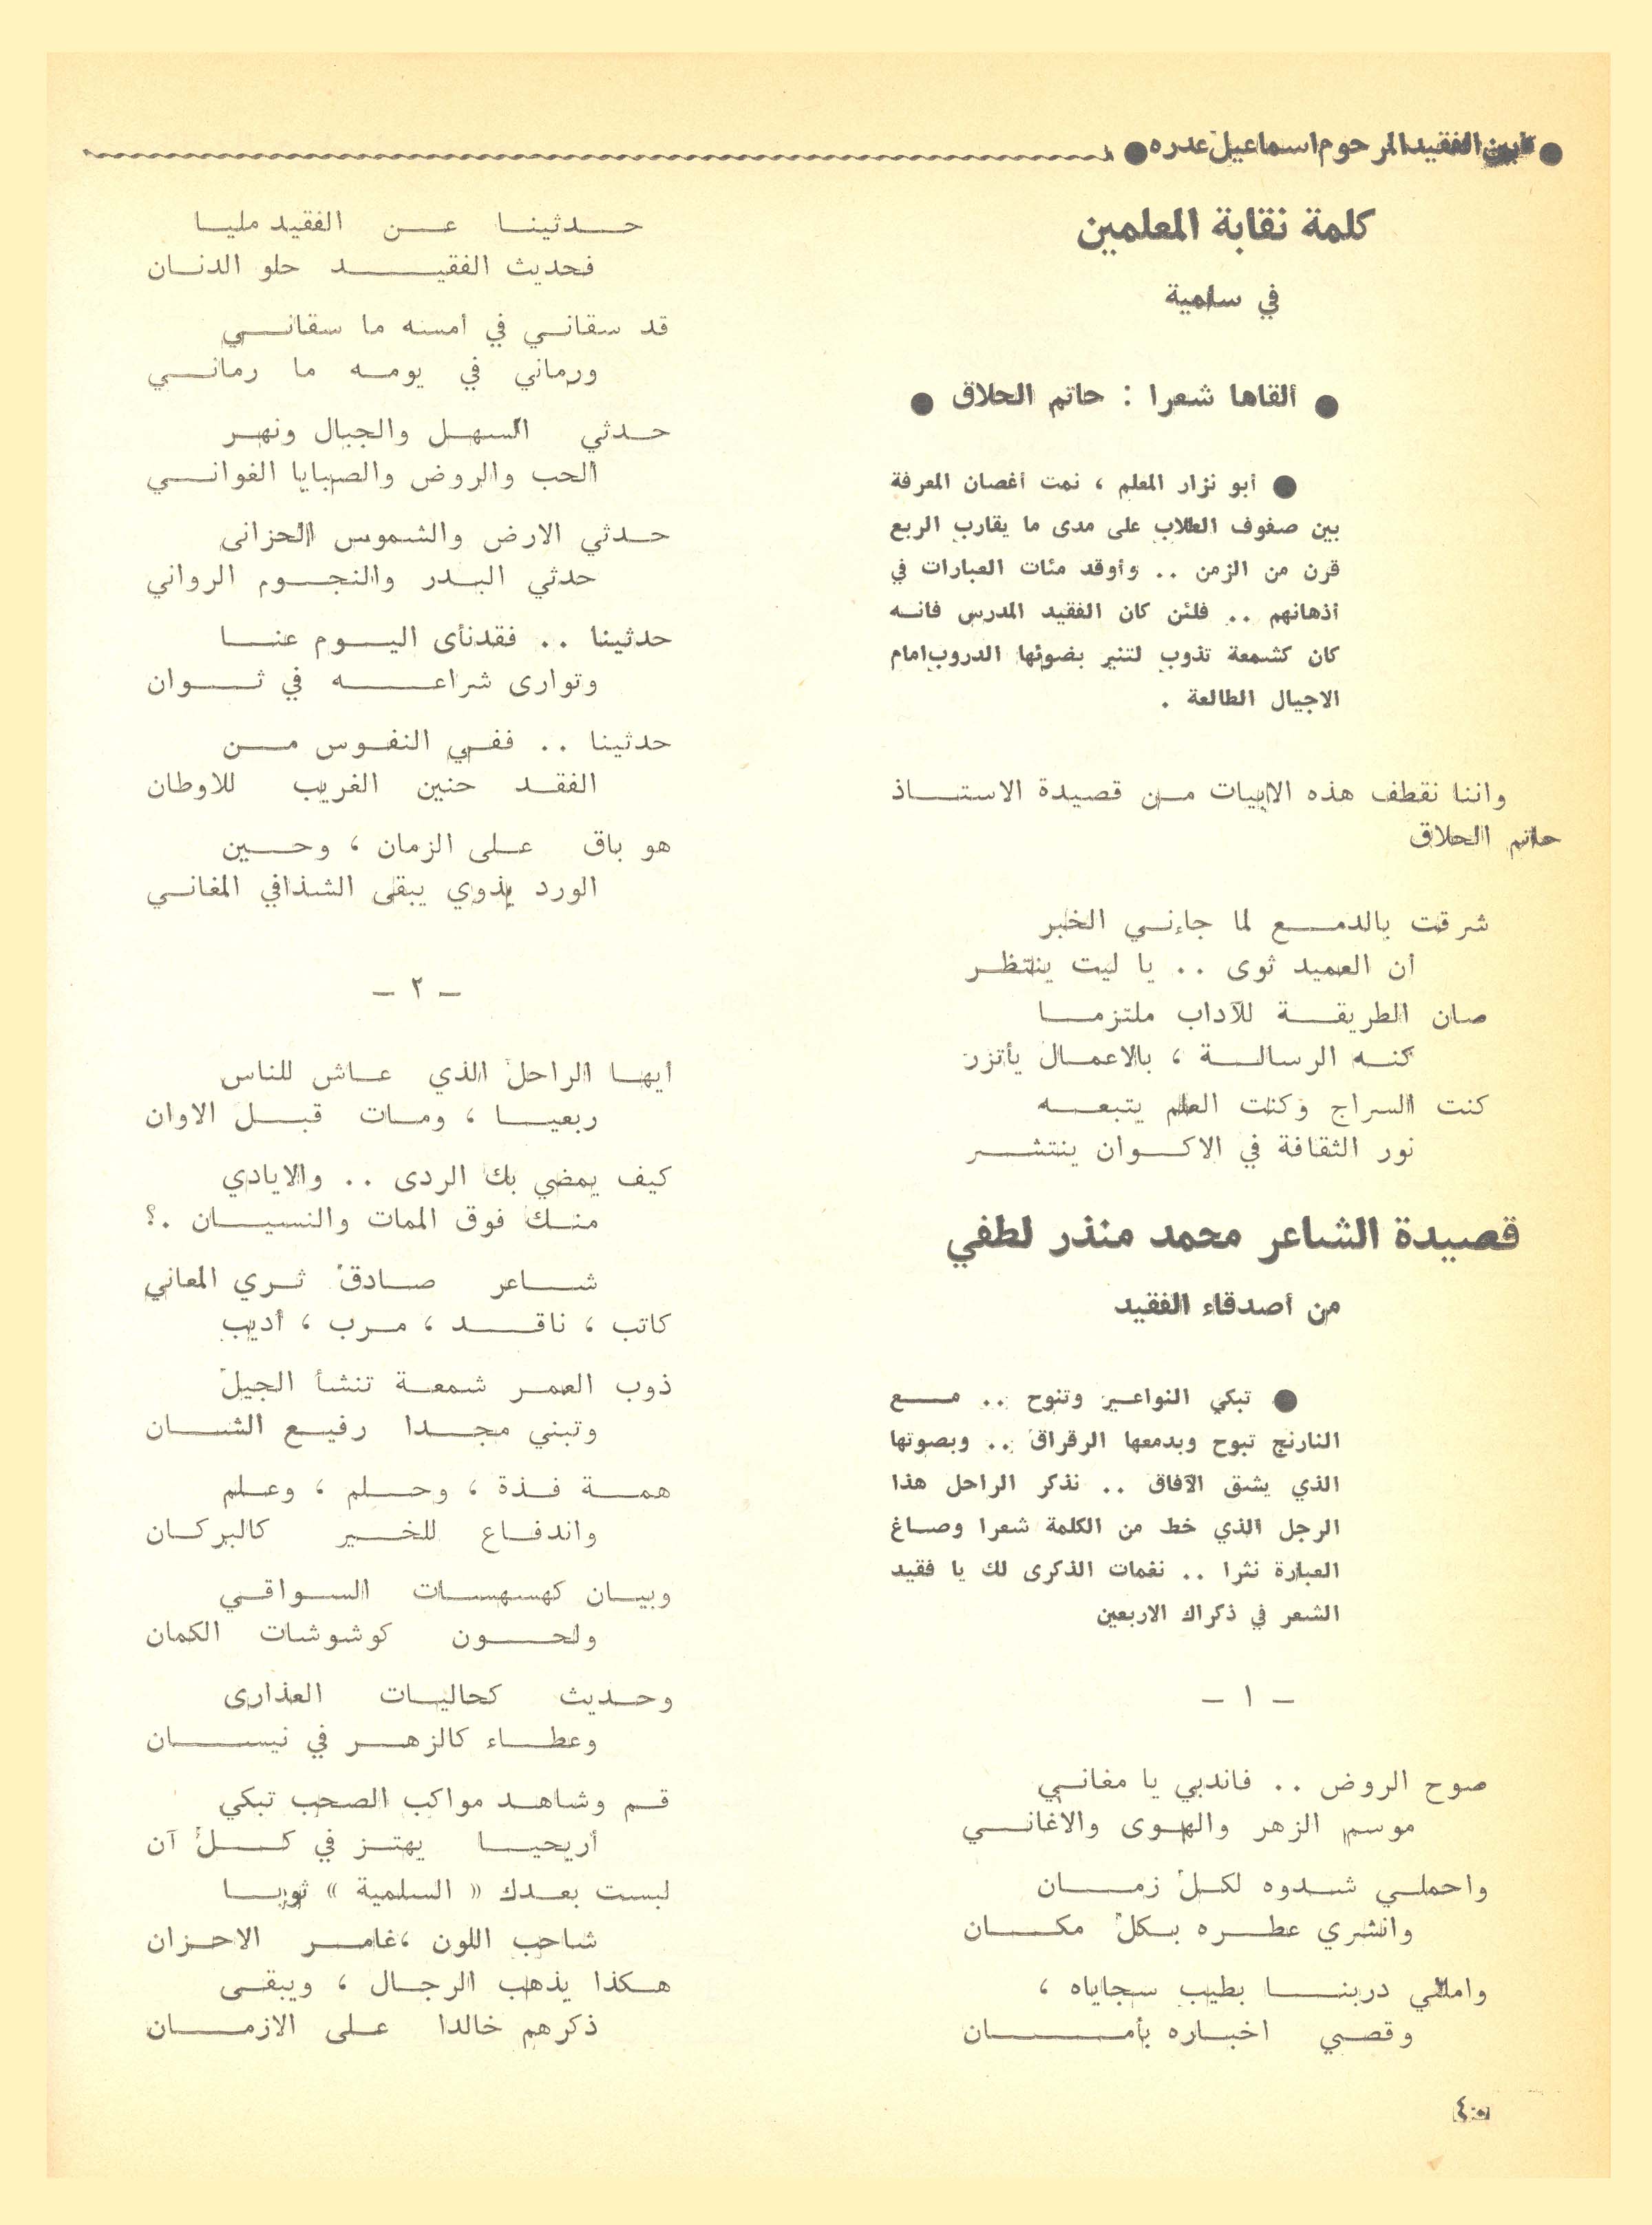 ● تأبين الفقيد المرحوم اسماعيل عدره ●
كلمة نقابة المعلمين
في سلمية
● ألقاها شعرا : حاتم الحلاق ●
● أبو نزار المعلم ، نمت أغصان المعرفة
بين صفوف الطلاب على مدى ما يقارب الربع
قرن من الزمن .. وأوقد مئات العبارات في
أذهانهم .. فلئن كان الفقيد المدرس فانه
كان كشمعة تذوب لتنير بضوئها الدروب امام
الاجيال الطالعة .
واننا نقطف هذه الابيات من قصيدة الاستاذ
حاتم الحلاق
شرقت بالدمع لما جاءني الخبر
أن العميد ثوى .. يا ليت ينتظر
صان الطريقة للآداب ملتزما
كنه الرسالة ، بالاعمال يأتزر
كنت السراج وكنت العلم يتبعه
نور الثقافة في الاكوان ينتشر
قصيدة الشاعر محمد منذر لطفي
من أصدقاء الفقيد
● تبكي النواعير وتنوح .. مع
النارنج تبوح وبدمعها الرقراق .. وبصوتها
الذي يشق الآفاق .. نذكر الراحل هذا
الرجل الذي خط من الكلمة شعرا وصاغ
العبارة نثرا .. نغمات الذكرى لك يا فقيد
الشعر في ذكراك الاربعين
– ١ –
صوح الروض .. فاندبي يا مغاني
موسم الزهر والهوى والاغاني
واحملي شدوه لكل زمان
وانشري عطره بكل مكان
واملئي دربنا بطيب سجاياه ،
وقصي اخباره بأمان
حدثينا عن الفقيد مليا
فحديث الفقيد حلو الدنان
قد سقاني في أمسه ما سقاني
ورماني في يومه ما رماني
حدثي السهل والجبال ونهر
الحب والروض والصبايا الغواني
حدثي الارض والشموس الحزانى
حدثي البدر والنجوم الرواني
حدثينا .. فقدنأى اليوم عنا
وتوارى شراعه في ثوان
حدثينا .. ففي النفوس من
الفقد حنين الغريب للاوطان
هو باق على الزمان ، وحين
الورد يذوي يبقى الشذافي المغاني
– ٢ –
أيها الراحل الذي عاش للناس
ربعيا ، ومات قبل الاوان
كيف يمضي بك الردى .. والايادي
منك فوق الممات والنسيان .؟
شاعر صادق ثري المعاني
كاتب ، ناقد ، مرب ، أديب
ذوب العمر شمعة تنشأ الجيل
وتبني مجدا رفيع الشان
همة فذة ، وحلم ، وعلم
واندفاع للخير كالبركان
وبيان كهسهسات السواقي
ولحون كوشوشات الكمان
وحديث كحاليات العذارى
وعطاء كالزهر في نيسان
قم وشاهد مواكب الصحب تبكي
أريحيا يهتز في كل آن
لبست بعدك « السلمية » ثوبا
شاحب اللون ،غامر الاحزان
هكذا يذهب الرجال ، ويبقى
ذكرهم خالدا على الازمان